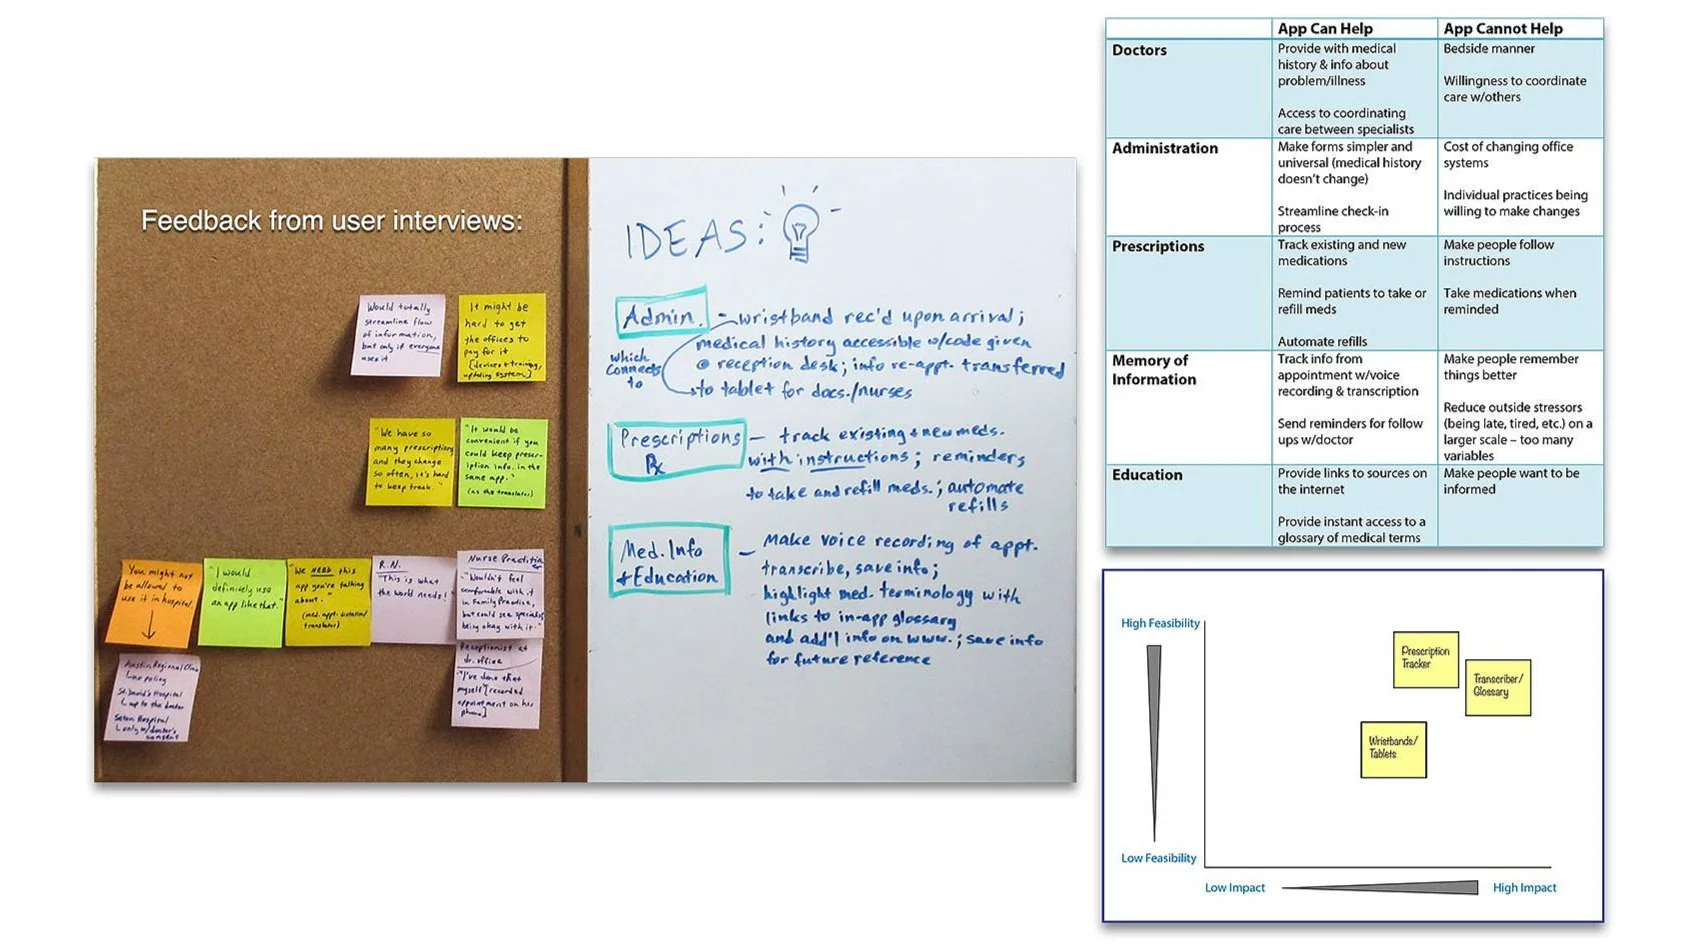 Feedback from user interviews:
Would totally
streamline flow
of information,
but only if everyone
uses it
It might be
hard to get
the offices to
pay for it
[devices + training,
updating system]
"We have so
many prescriptions,
and they change
so often, it's hard
to keep track."
"It would be
convenient if you
could keep prescrip-
tion info. in the
same app."
(as the translator)
You might not
be allowed to
use it in hospital.
"I would
definitely use
an app like that."
"We NEED this
app you're talking
about."
translator)
R.N.
"This is what
the world needs!"
Nurse Practitioner
"Wouldn't feel
comfortable with it
in Family Practice,
but could see specialists
being okay with it."
Austin Regional Clinic
policy
St. David's Hospital
up to the doctor
Seton Hospital
only w/doctor's
consent
Receptionist at
dr. office
"I've done that
myself" [recorded
appointment on her
phone]
IDEAS:
Admin. - wristband rec'd upon arrival;
medical history accessible w/code given
@ reception desk; info re-appt. transferred
to tablet for docs./nurses
which
connects
to
Prescriptions - track existing + new meds.
Rx with instructions; reminders
to take and refill meds.; automate
refills
Med. Info
+ Education
- Make voice recording of appt.
transcribe, save info;
highlight med. terminology with
links to in-app glossary
and add'l info on www.; save info
for future reference
App Can Help App Cannot Help
Doctors
Provide with medical
history & info about
problem/illness
Access to coordinating
care between specialists
Bedside manner
Willingness to coordinate
care w/others
Administration
Make forms simpler and
universal (medical history
doesn't change)
Streamline check-in
process
Cost of changing office
systems
Individual practices being
willing to make changes
Prescriptions
Track existing and new
medications
Remind patients to take or
refill meds
Automate refills
Make people follow
instructions
Take medications when
reminded
Memory of
Information
Track info from
appointment w/voice
recording & transcription
Send reminders for follow
ups w/doctor
Make people remember
things better
Reduce outside stressors
(being late, tired, etc.) on a
larger scale – too many
variables
Education
Provide links to sources on
the internet
Provide instant access to a
glossary of medical terms
Make people want to be
informed
High Feasibility
Prescription
Tracker
Transcriber/
Glossary
Wristbands/
Tablets
Low Feasibility
Low Impact
High Impact